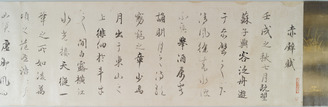 赤壁賦
壬戌之秋七月既望
蘇子與客泛舟遊
于赤壁之下
清風徐來水波
不興舉酒屬客
誦明月之詩歌
窈窕之章少焉
月出于東山之
上徘徊於斗牛
之間白露橫江
水光接天縱一
葦之所如凌萬